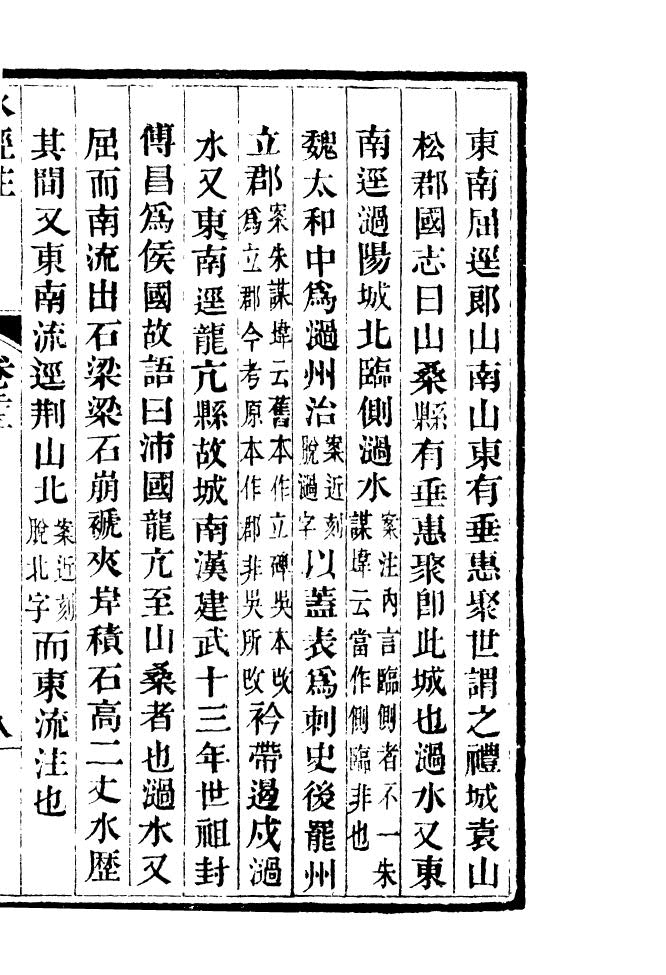 東南屈逕郎山南山東有垂惠聚世謂之禮城袁山
松郡國志曰山桑縣有垂惠聚卽此城也濄水又東
南逕濄陽城北臨側濄水案注內言臨側者不一朱謀㙔云當作側臨非也
魏太和中爲濄州治案近刻脫濄字以蓋表爲刺史後罷州
立郡案朱謀㙔云舊本作立碑吳本改爲立郡今考原本作郡非吳所改衿帶邊戍濄
水又東南逕龍亢縣故城南漢建武十三年世祖封
傅昌爲侯國故語曰沛國龍亢至山桑者也濄水又
屈而南流出石梁梁石崩褫夾岸積石高二丈水歷
其間又東南流逕荆山北案近刻脫北字而東流注也
水經注
卷二十三
八